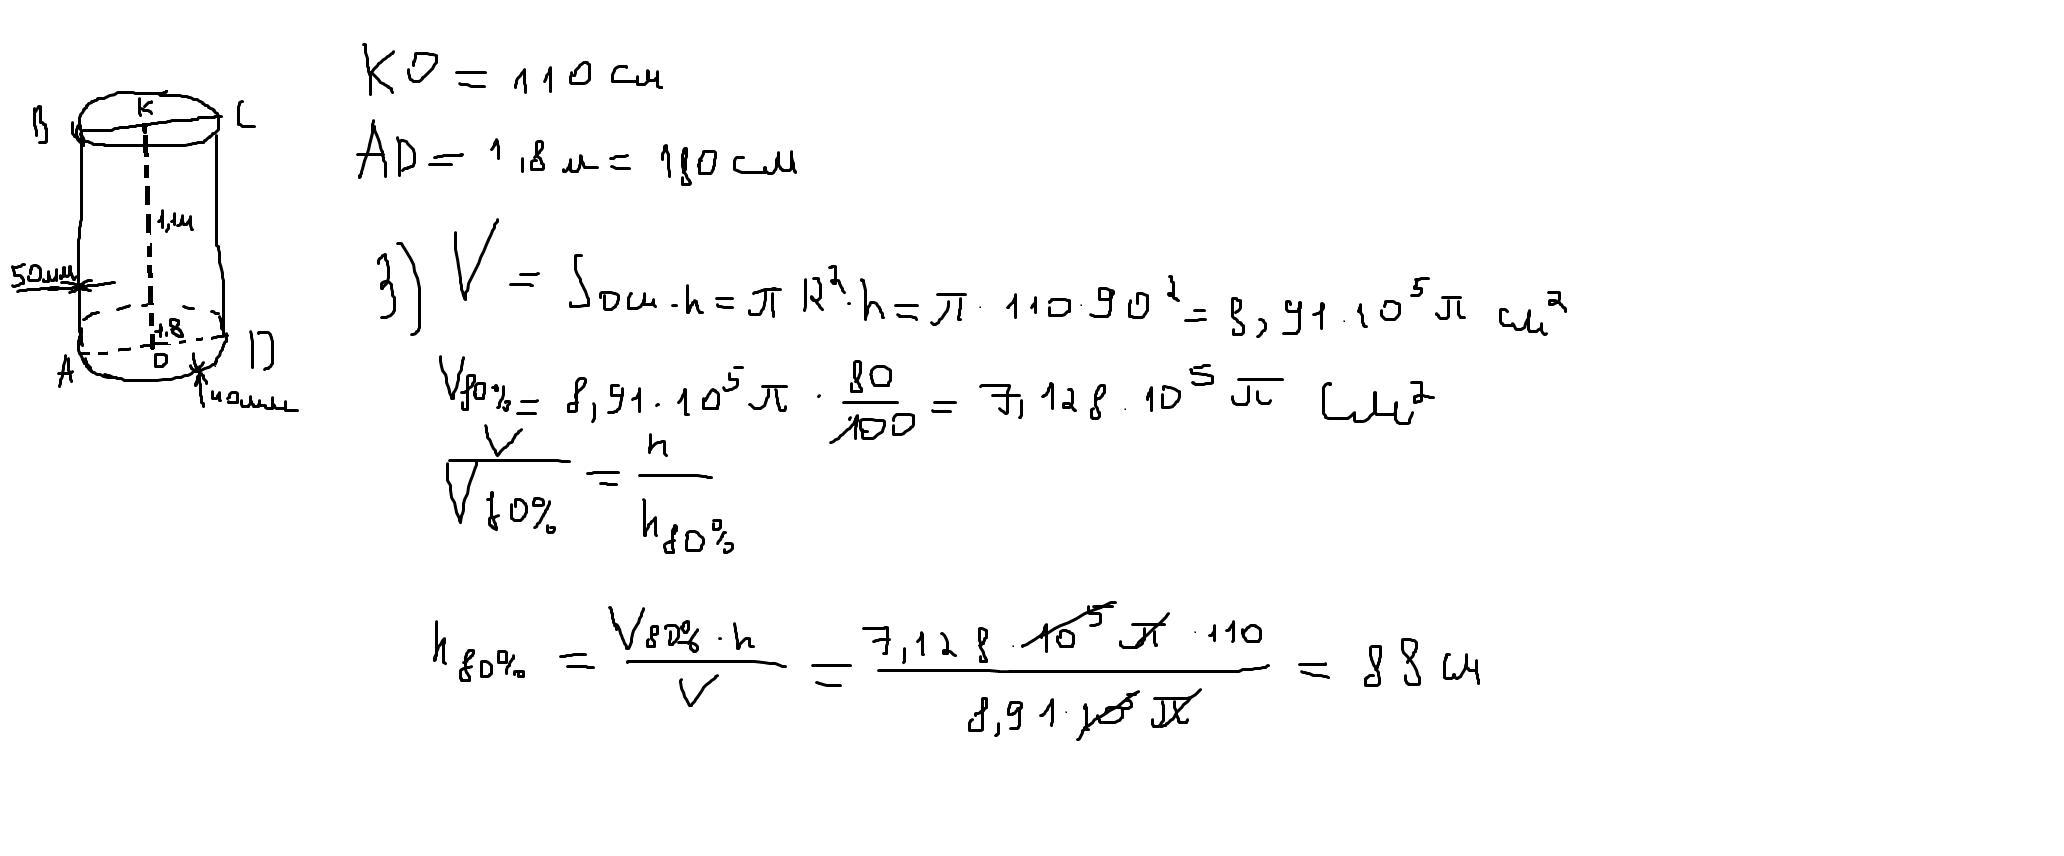 KO = 110 см
AD = 1,8 м = 180 см
B
K
C
1,1м
50мм
1.8
A
O
D
40мм
3) V = Sосн · h = π R² · h = π · 110 · 90² = 8,91 · 10⁵ π см²
V80% = 8,91 · 10⁵ π · 80/100 = 7,128 · 10⁵ π см²
V/V80% = h/h80%
h80% = V80% · h/V = 7,128 · 10⁵ π · 110/8,91 · 10⁵ π = 88 см